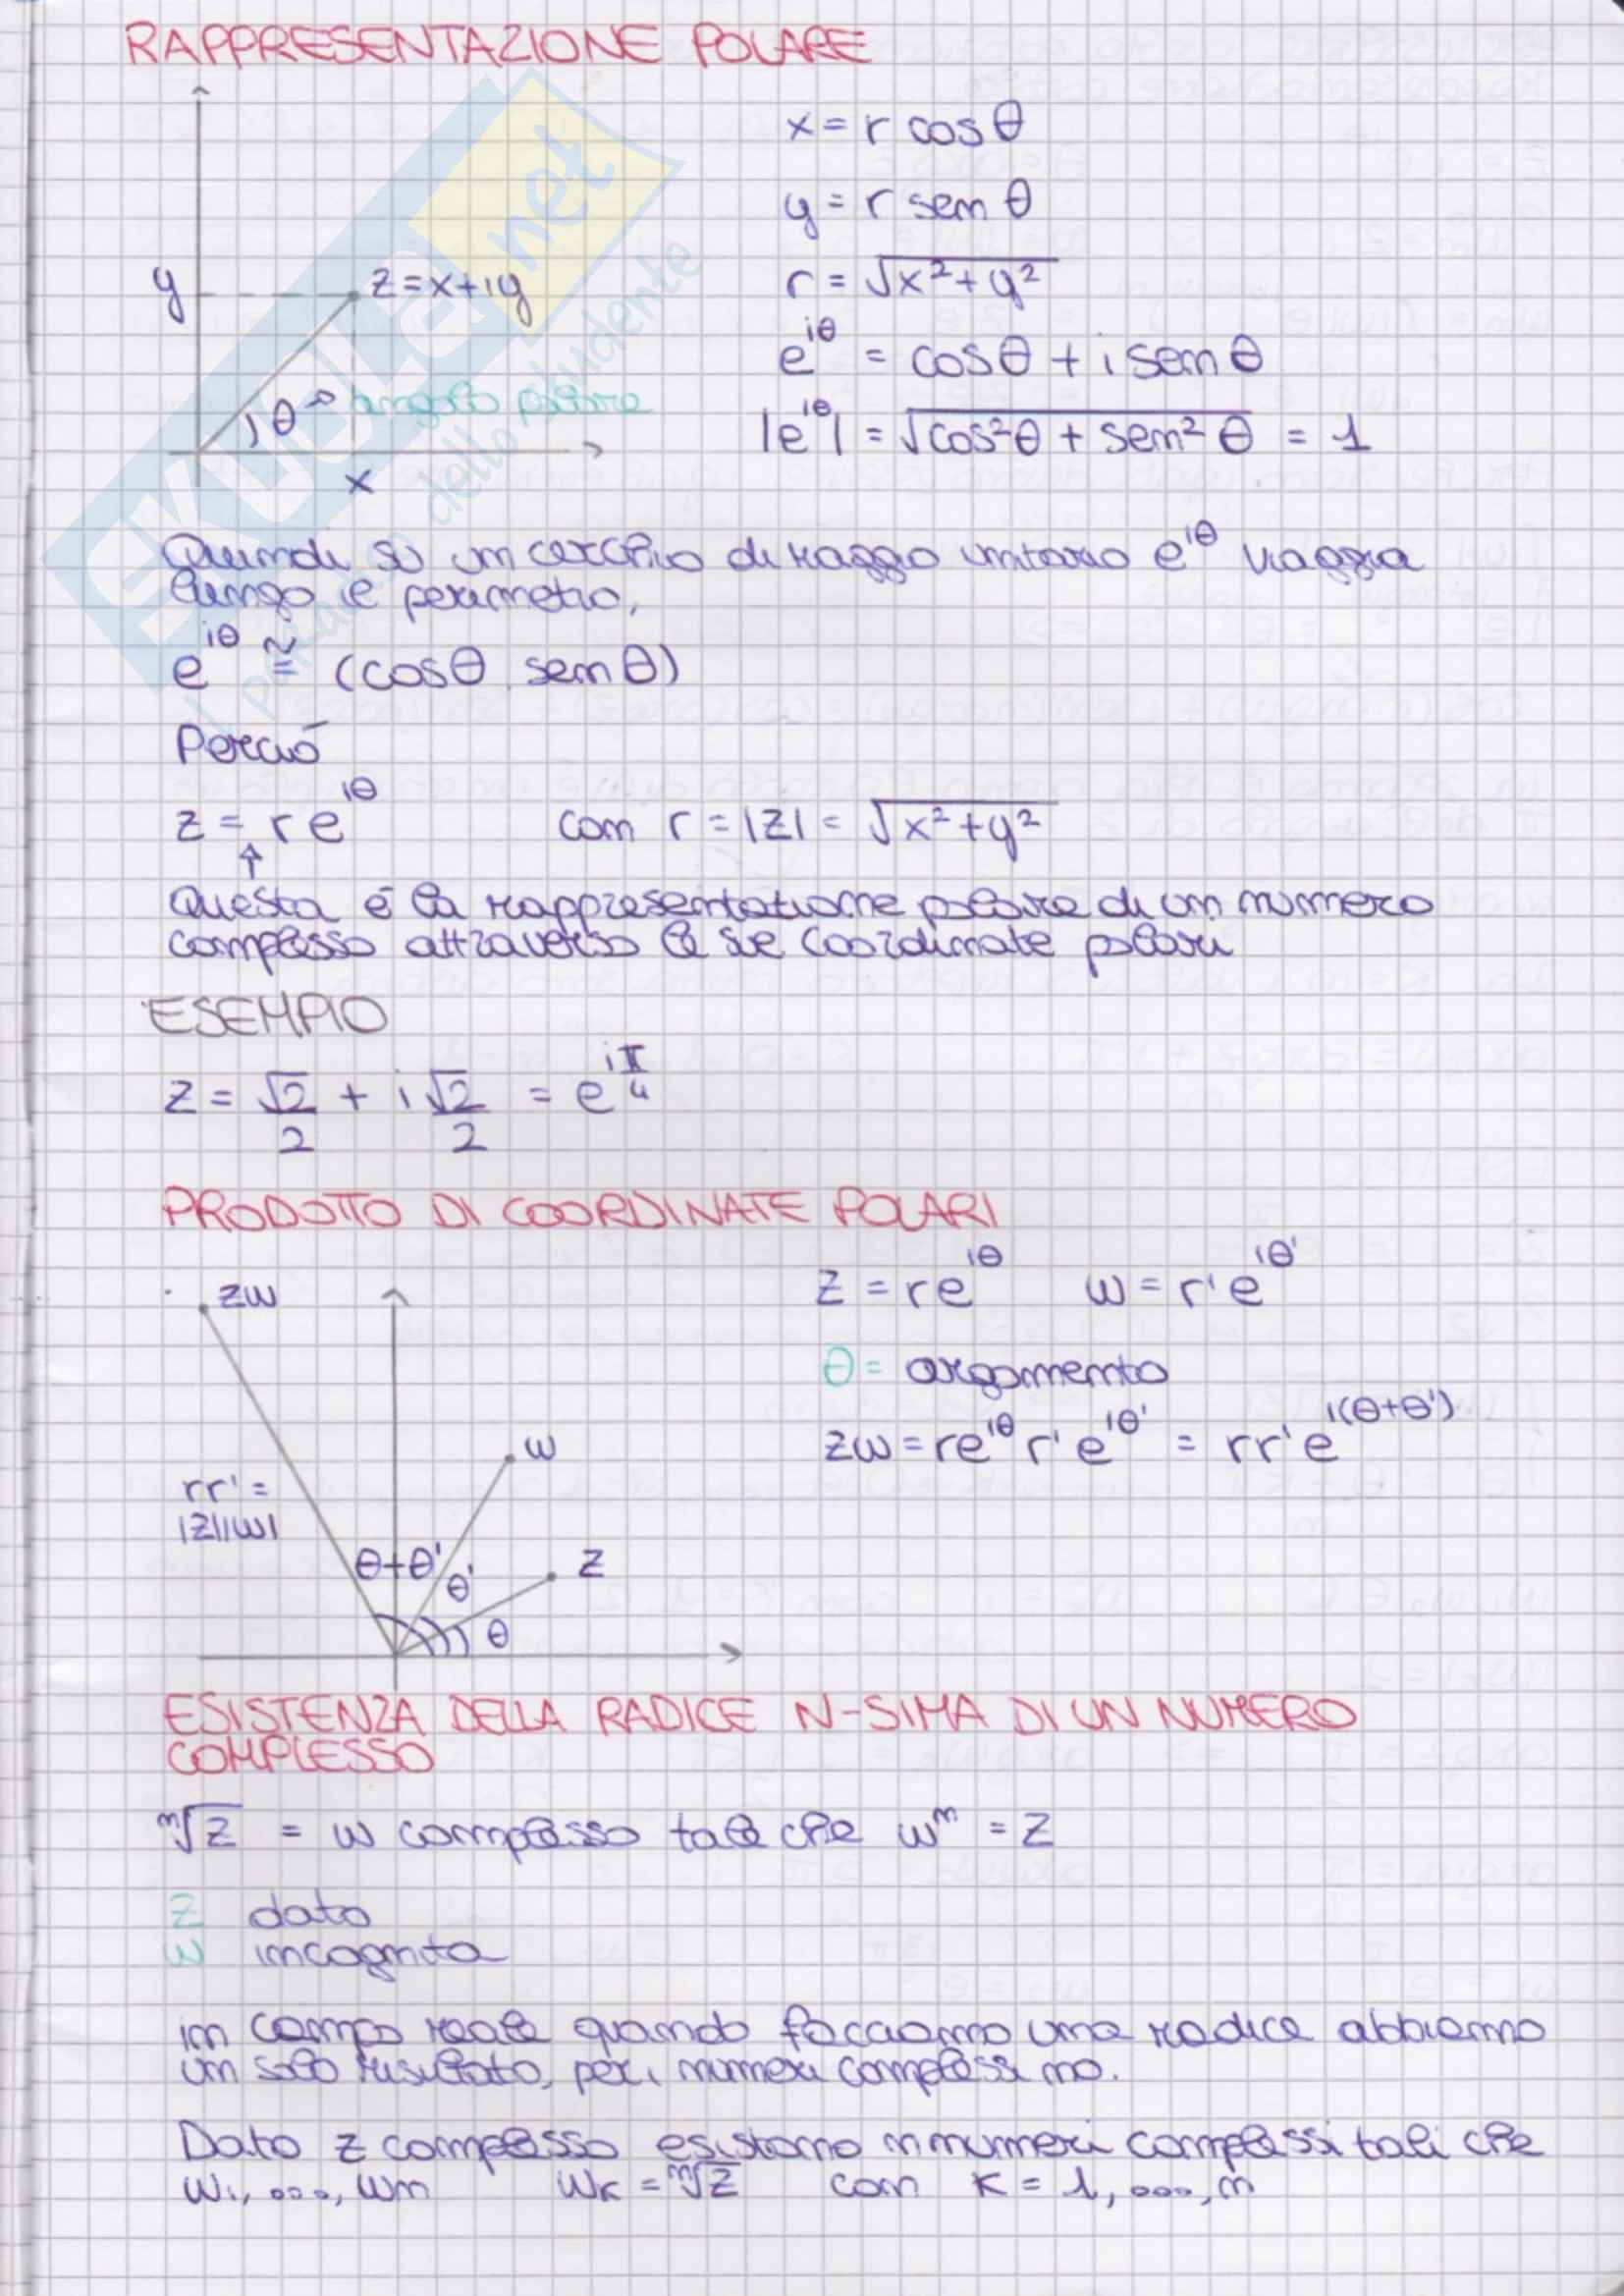 RAPPRESENTAZIONE POLARE
x = r cos θ
y = r sen θ
y
z = x + iy
r = √x² + y²
e^iθ = cos θ + i sen θ
θ → angolo polare
|e^iθ| = √cos²θ + sen²θ = 1
x
SKUOLA.net
Il paradiso dello studente
Quindi su un cerchio di raggio unitario e^iθ viaggia
lungo il perimetro.
e^iθ ≅ (cos θ, sen θ)
Perciò
z = r e^iθ con r = |z| = √x² + y²
↑
Questa è la rappresentazione polare di un numero
complesso attraverso le sue coordinate polari
ESEMPIO
z = √2/2 + i √2/2 = e^i π/4
PRODOTTO DI COORDINATE POLARI
zw
z = re^iθ w = r'e^iθ'
θ = argomento
w
zw = re^iθ r'e^iθ' = rr'e^i(θ+θ')
rr' =
|z||w|
θ+θ'
θ'
z
θ
ESISTENZA DELLA RADICE N-SIMA DI UN NUMERO
COMPLESSO
ⁿ√z = w complesso tale che wⁿ = z
z dato
w incognita
in campo reale quando facciamo una radice abbiamo
un solo risultato, per i numeri complessi no.
Dato z complesso esistono n numeri complessi tali che
w₁, ..., wₙ wₖ = ⁿ√z con k = 1, ..., n